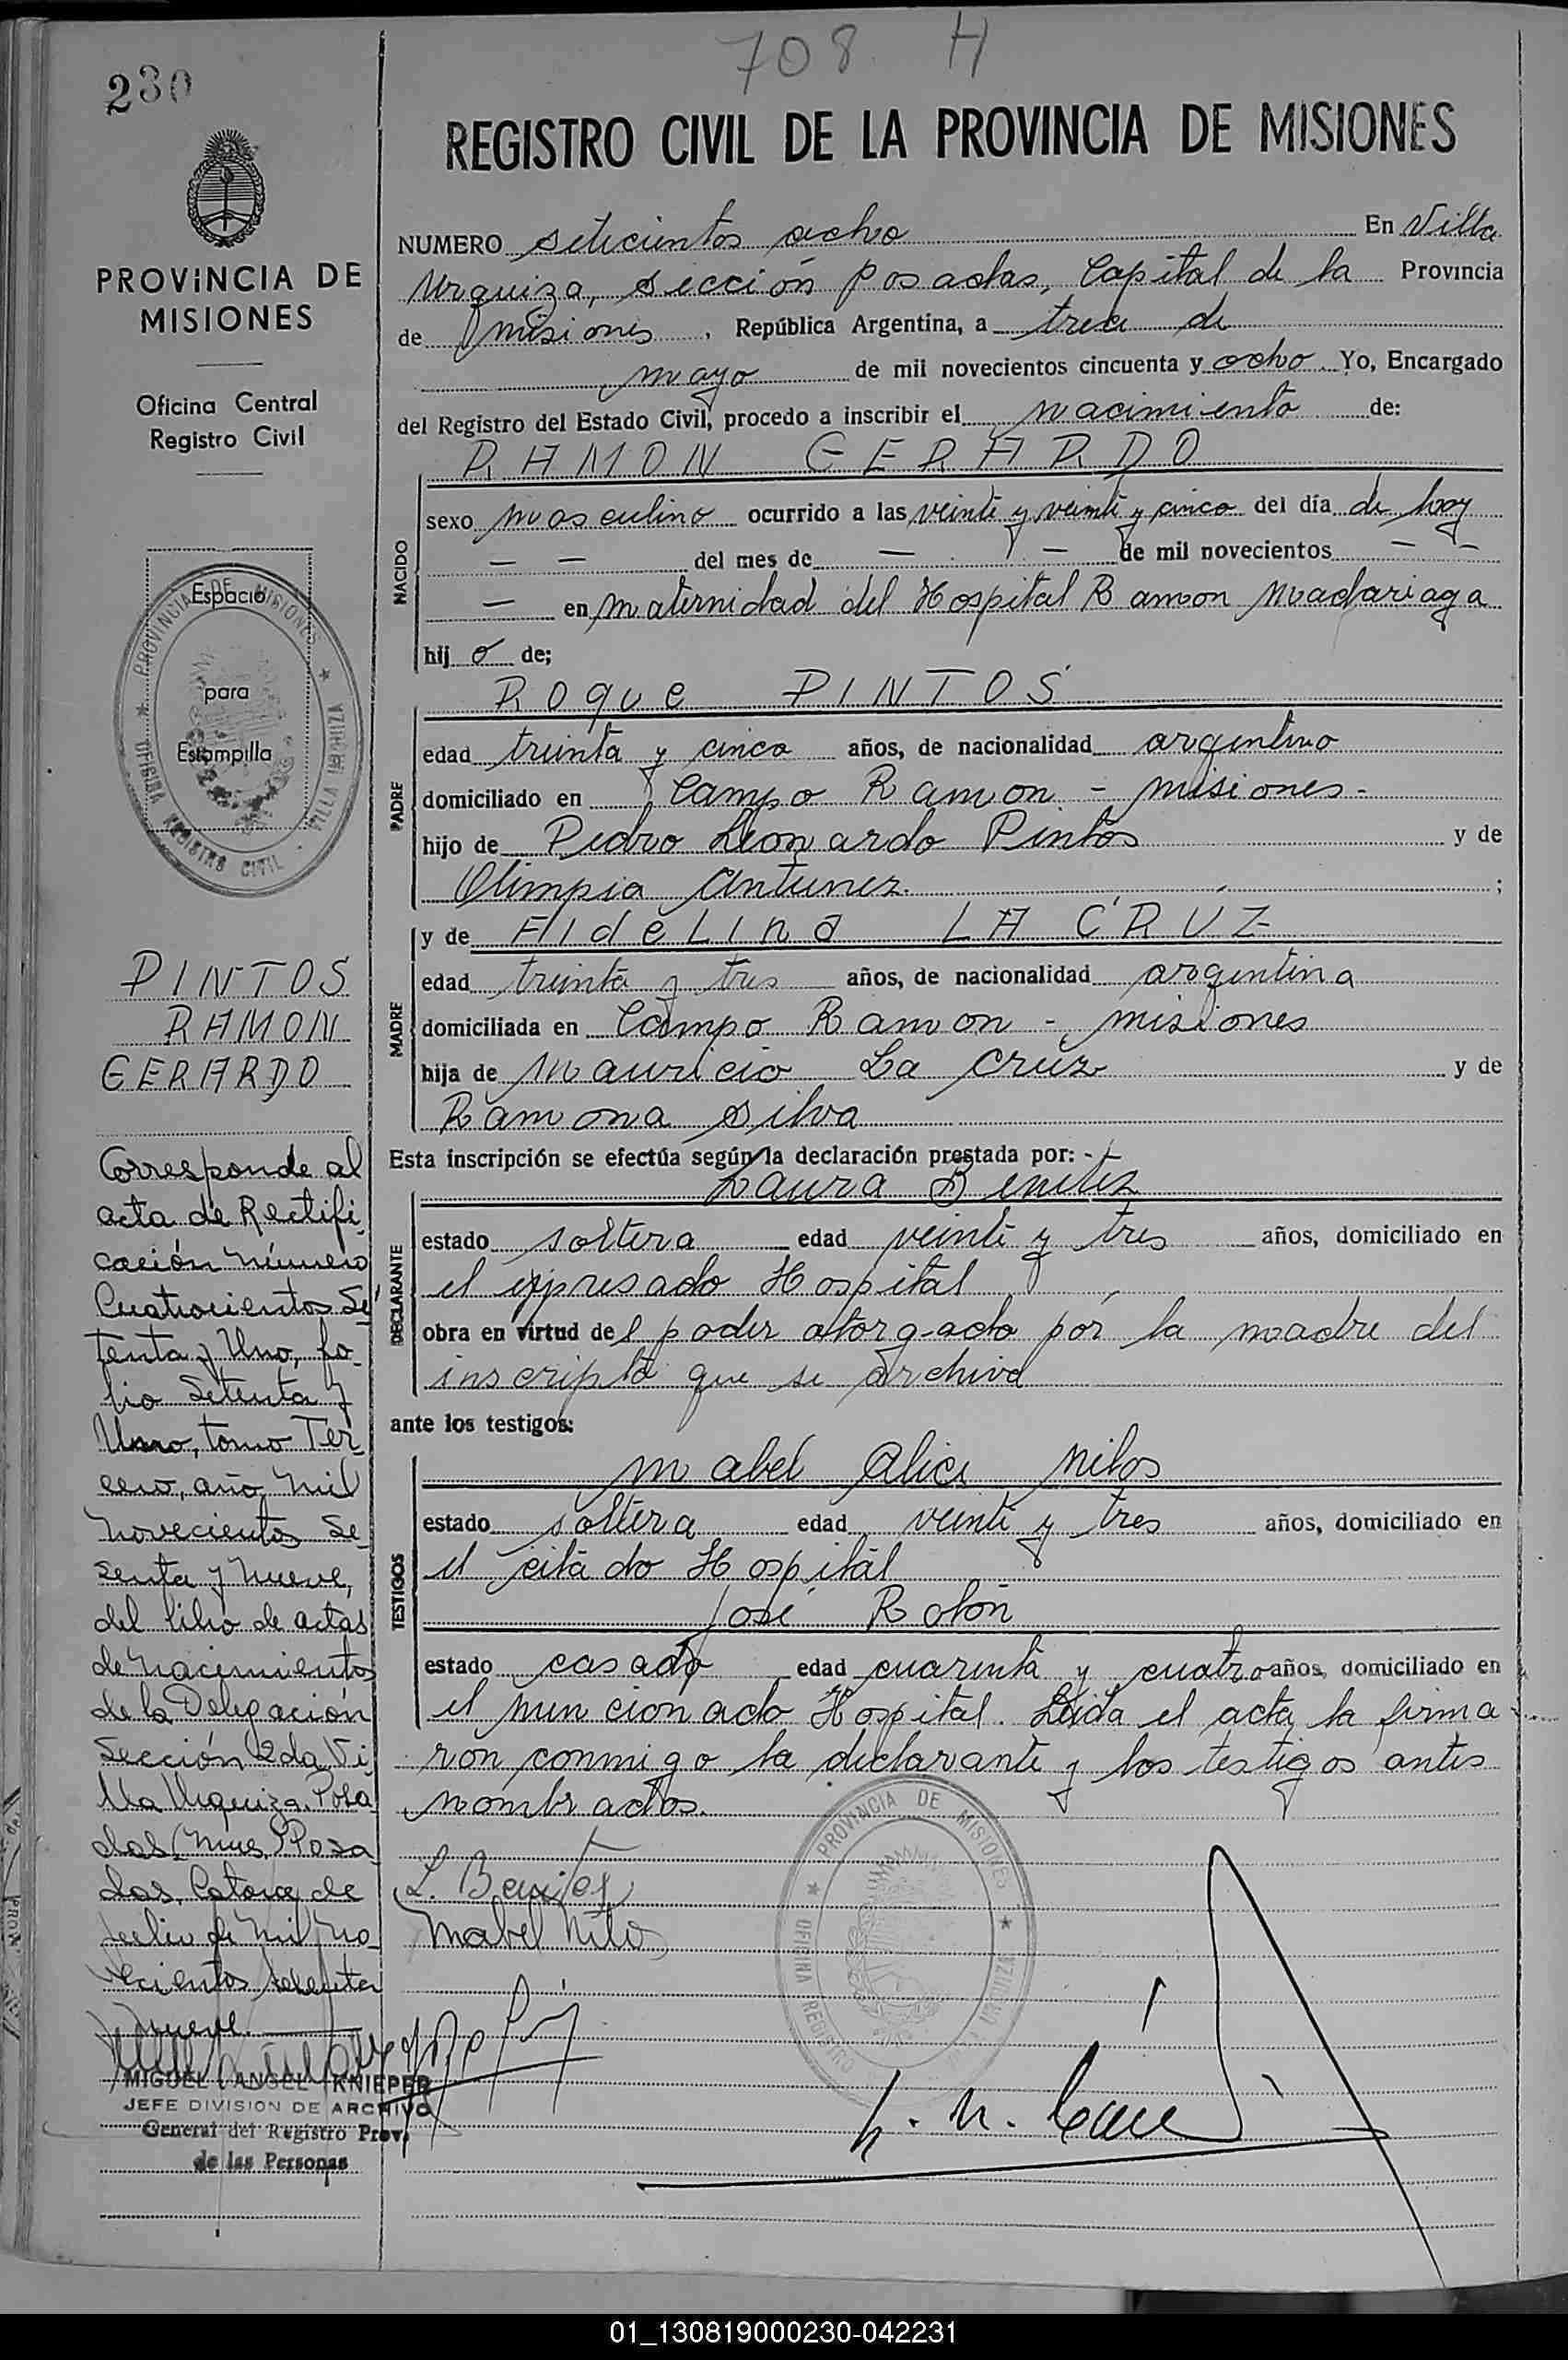 708 H
230
REGISTRO CIVIL DE LA PROVINCIA DE MISIONES
PROVINCIA DE
MISIONES
Oficina Central
Registro Civil
Espacio
para
Estampilla
PROVINCIA DE MISIONES
OFICINA REGISTRO CIVIL
VILLA URQUIZA
PINTOS
RAMON
GERARDO
Corresponde al
acta de Rectifi
cación número
Cuatrocientos Se
tenta y Uno, fo
lio Setenta y
Uno, tomo Ter
cero, año mil
novecientos Se
senta y nueve,
del libro de actas
de nacimientos
de la Delegación
Sección 2da Vi
lla Urquiza. Posa
das, Mnes, Posa
das, Catorce de
Julio de mil no
vecientos sesenta
y nueve.
MIGUEL ANGEL KNIEPER
JEFE DIVISION DE ARCHIVO
General del Registro Prov.
de las Personas
NUMERO setecientos ocho En Villa
Urquiza, sección Posadas, Capital de la Provincia
de Misiones, República Argentina, a trece de
mayo de mil novecientos cincuenta y ocho. Yo, Encargado
del Registro del Estado Civil, procedo a inscribir el nacimiento de:
RAMON GERARDO
NACIDO
sexo masculino ocurrido a las veinte y veinte y cinco del día de hoy
— — del mes de — — de mil novecientos — —
— en maternidad del Hospital Ramon Madariaga
hij o de;
Roque PINTOS
PADRE
edad treinta y cinco años, de nacionalidad argentino
domiciliado en Campo Ramon. - Misiones -
hijo de Pedro Leonardo Pintos y de
Olimpia Antunez. ;
y de FideLina LA CRUZ
MADRE
edad treinta y tres años, de nacionalidad argentina
domiciliada en Campo Ramon - Misiones
hija de Mauricio La Cruz y de
Ramona Silva
Esta inscripción se efectúa según la declaración prestada por: -
Laura Benitez
DECLARANTE
estado soltera edad veinte y tres años, domiciliado en
el expresado Hospital
obra en virtud del poder otorgado por la madre del
inscripto que se archiva
ante los testigos:
Mabel Alice Nilos
TESTIGOS
estado soltera edad veinte y tres años, domiciliado en
el citado Hospital
José Rolón
estado casado edad cuarenta y cuatro años, domiciliado en
el mencionado Hospital. Leida el acta, la firma
ron conmigo la declarante y los testigos antes
nombrados.
PROVINCIA DE MISIONES
OFICINA REGISTRO
L. Benitez
Mabel Nilos
01_130819000230-042231